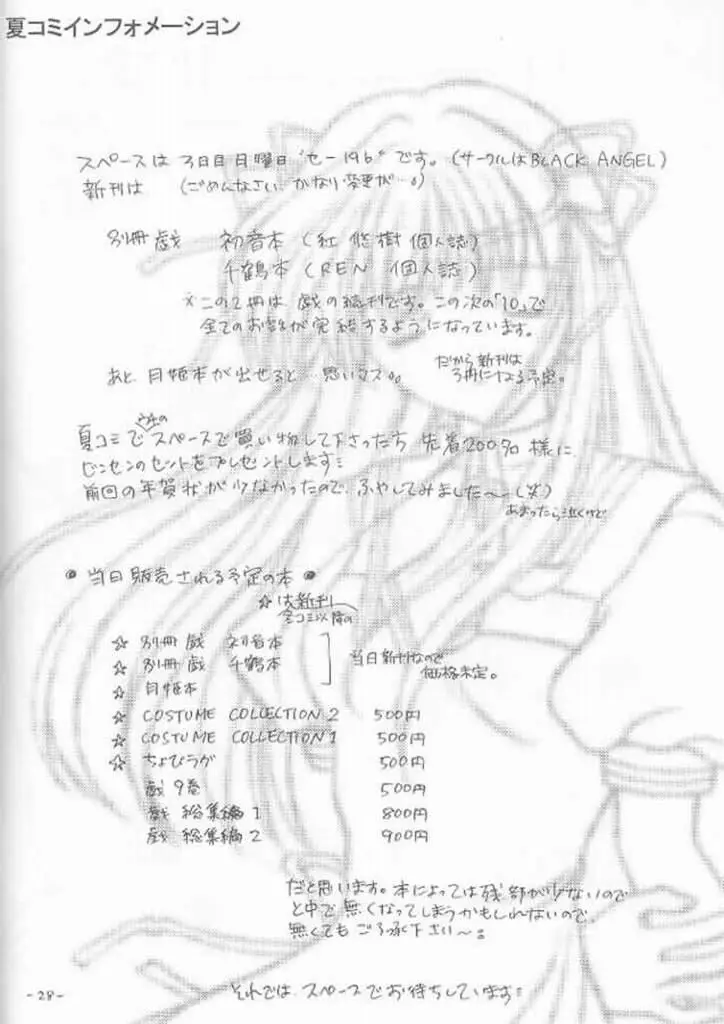 夏コミインフォメーション
スペースは3日目日曜日"セー19b"です。(サークルはBLACK ANGEL)
新刊は (ごめんなさい、かなり変更が…。)
別冊 戯 初音本 (紅 悠樹 個人誌)
千鶴本 (REN 個人誌)
※この2冊は、戯の続刊です。この次の「10」で
全てのお話が完結するようになっています。
あと、月姫本が出せると…思いマス。。
だから新刊は
3冊になる予定。
夏コミでウチのスペースで買い物して下さった方 先着200名様に
ビンセンのセットをプレゼントします
前回の年賀状が少なかったので、ふやしてみました〜(笑)
あまったら泣くけど
● 当日販売される予定の本 ●
☆は新刊
冬コミ以降の
☆ 別冊 戯 初音本
☆ 別冊 戯 千鶴本
当日新刊なので
価格未定。
☆ 月姫本
☆ COSTUME COLLECTION 2 500円
☆ COSTUME COLLECTION 1 500円
☆ ちょびラグ 500円
戯 9巻 500円
戯 総集編 1 800円
戯 総集編 2 900円
だと思います。本によっては残部が少ないので
と中で無くなってしまうかもしれないので、
無くてもごろ承下さい〜。
それでは、スペースでお待ちしています
-28-